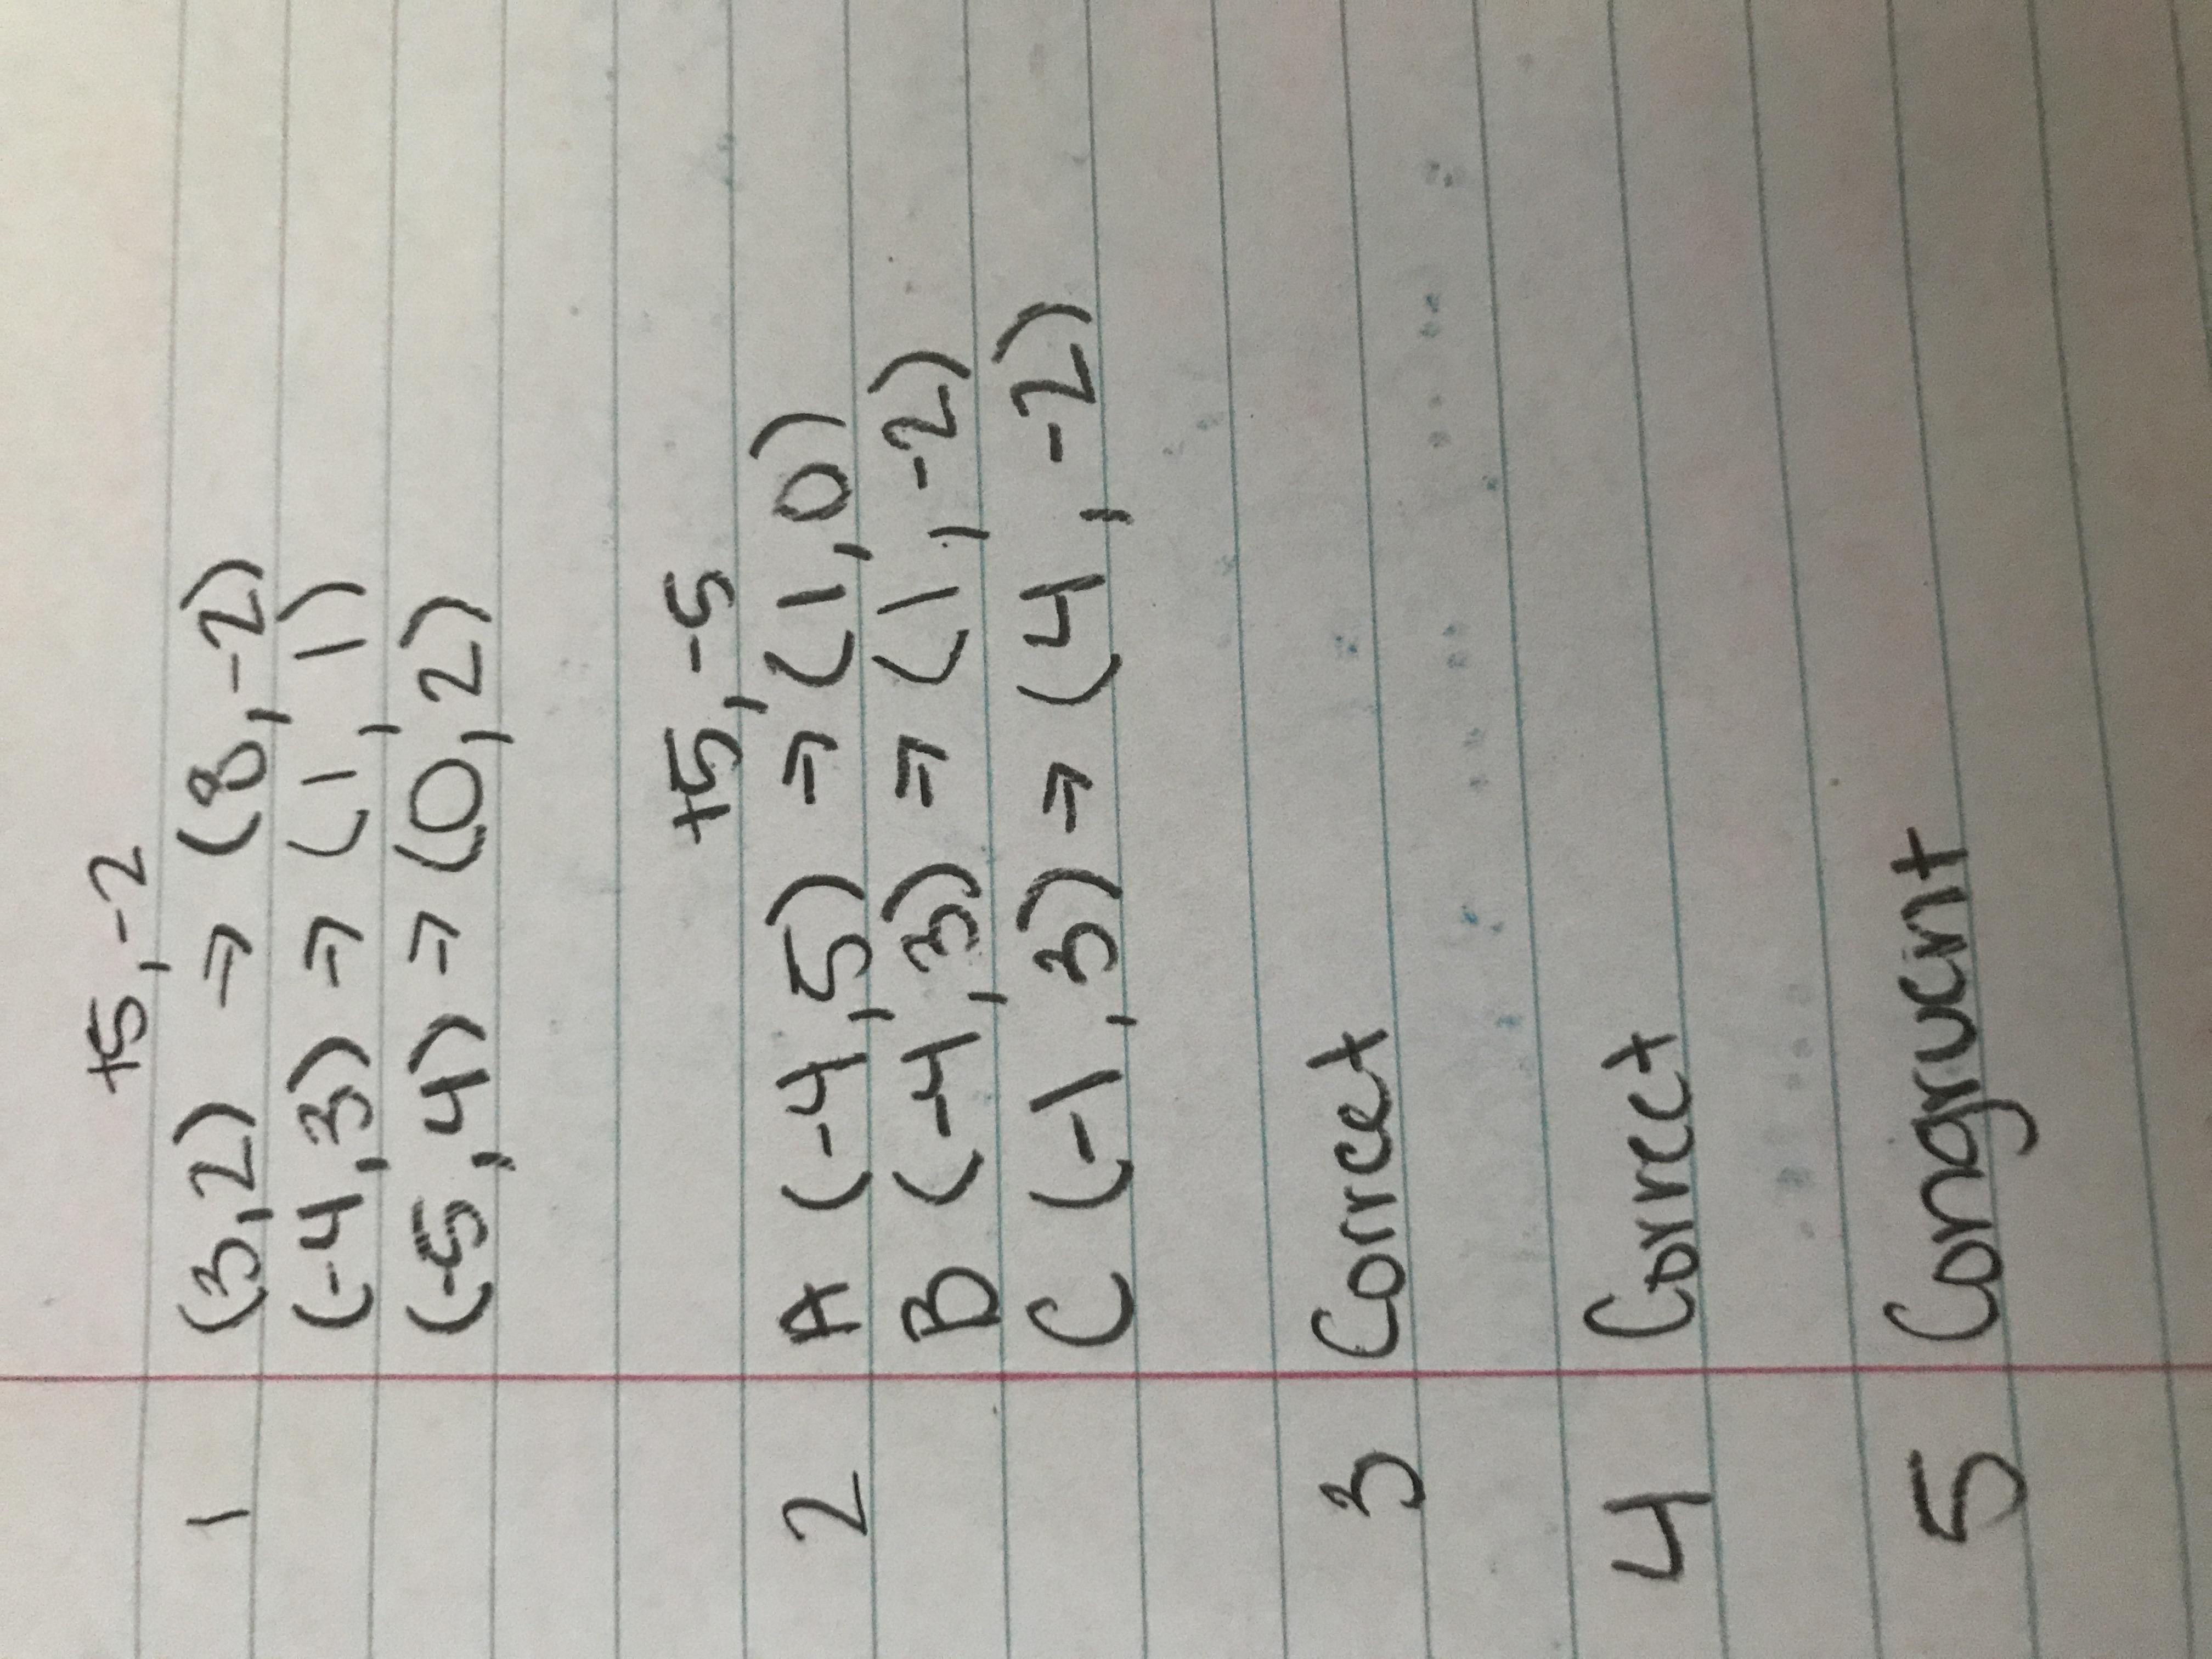 +5,-2
1 (3,2) → (8,-2)
(-4,3) → (1,1)
(-5,4) → (0,2)
+5,-5
2 A (-4,5) → (1,0)
B (-4,3) → (1,-2)
C (-1,3) → (4,-2)
3 Correct
4 Correct
5 Congrucint